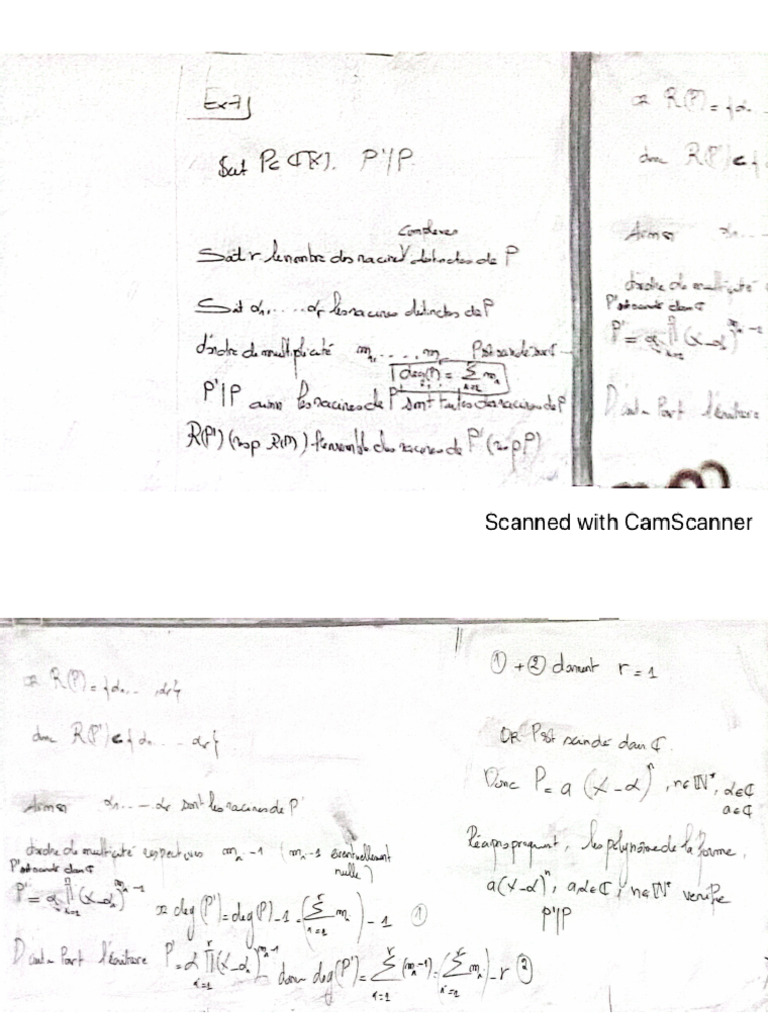 Ex 7)
Soit P∈ℂ[X]. P'/P.
complexes
Soit r le nombre des racines distinctes de P
Soit α₁, ..... αr les racines distinctes de P
d'ordre de multiplicité m₁, ...., mr P est scindé sur
deg(P) = Σ mₖ
P'|P les racines de P' sont toutes des racines de P
R(P') (resp R(P)) l'ensemble des racines de P' (resp P)
R(P) = {α
donc R(P') ⊂ {
α₁...
d'ordre de multiplicité
P' est scindé dans ℂ
P' = α ∏ (X-αₖ)^{mₖ-1}
D'autre Part l'écriture
Scanned with CamScanner
R(P) = {α₁... αr}
donc R(P') ⊂ {α₁.... αr}
α₁...- αr sont les racines de P'
d'ordre de multiplicité respectives mₖ-1 (mₖ-1 éventuellement
nulle)
P' est scindé dans ℂ
P' = α ∏ (X-αₖ)^{mₖ-1}
deg(P') = deg(P)-1 = (Σ mₖ) - 1 ①
D'autre Part l'écriture P' = α ∏ (X-αₖ)^{mₖ-1} donc deg(P') = Σ (mₖ-1) = (Σ mₖ) - r ②
① + ② donnent r = 1
OR P est scindé dans ℂ.
Donc P = a (X-α)ⁿ, n∈ℕ*, α∈ℂ
a∈ℂ
Réciproquement, les polynôme de la forme,
a(X-α)ⁿ, a,α∈ℂ, n∈ℕ* vérifie
P'|P